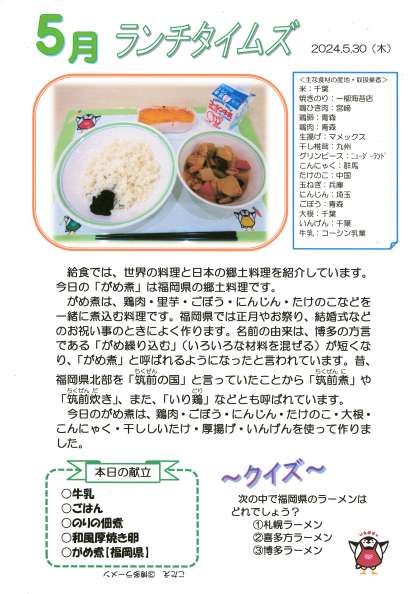 5月 ランチタイムズ
2024.5.30（木）
＜主な食材の産地・取扱業者＞
米：千葉
焼きのり：一柳海苔店
鶏ひき肉：宮崎
鶏卵：青森
鶏肉：青森
生揚げ：マメックス
干し椎茸：九州
グリンピース：ﾆｭｰｼﾞｰﾗﾝﾄﾞ
こんにゃく：群馬
たけのこ：中国
玉ねぎ：兵庫
にんじん：埼玉
ごぼう：青森
大根：千葉
いんげん：千葉
牛乳：コーシン乳業
給食では、世界の料理と日本の郷土料理を紹介しています。
今日の「がめ煮」は福岡県の郷土料理です。
がめ煮は、鶏肉・里芋・ごぼう・にんじん・たけのこなどを
一緒に煮込む料理です。福岡県では正月やお祭り、結婚式など
のお祝い事のときによく作ります。名前の由来は、博多の方言
である「がめ繰り込む」（いろいろな材料を混ぜる）が短くな
り、「がめ煮」と呼ばれるようになったと言われています。昔、
福岡県北部を「筑前の国」と言っていたことから「筑前煮」や
「筑前炊き」、また、「いり鶏」などとも呼ばれています。
今日のがめ煮は、鶏肉・ごぼう・にんじん・たけのこ・大根・
こんにゃく・干ししいたけ・厚揚げ・いんげんを使って作りま
した。
本日の献立
○牛乳
○ごはん
○のりの佃煮
○和風厚焼き卵
○がめ煮【福岡県】
～クイズ～
次の中で福岡県のラーメンは
どれでしょう？
①札幌ラーメン
②喜多方ラーメン
③博多ラーメン
こたえ ③博多ラーメン